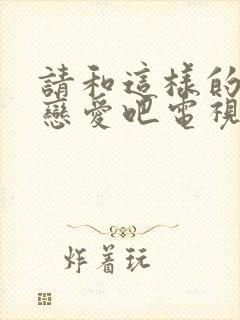 請和這樣的
戀愛吧電視
炸着玩